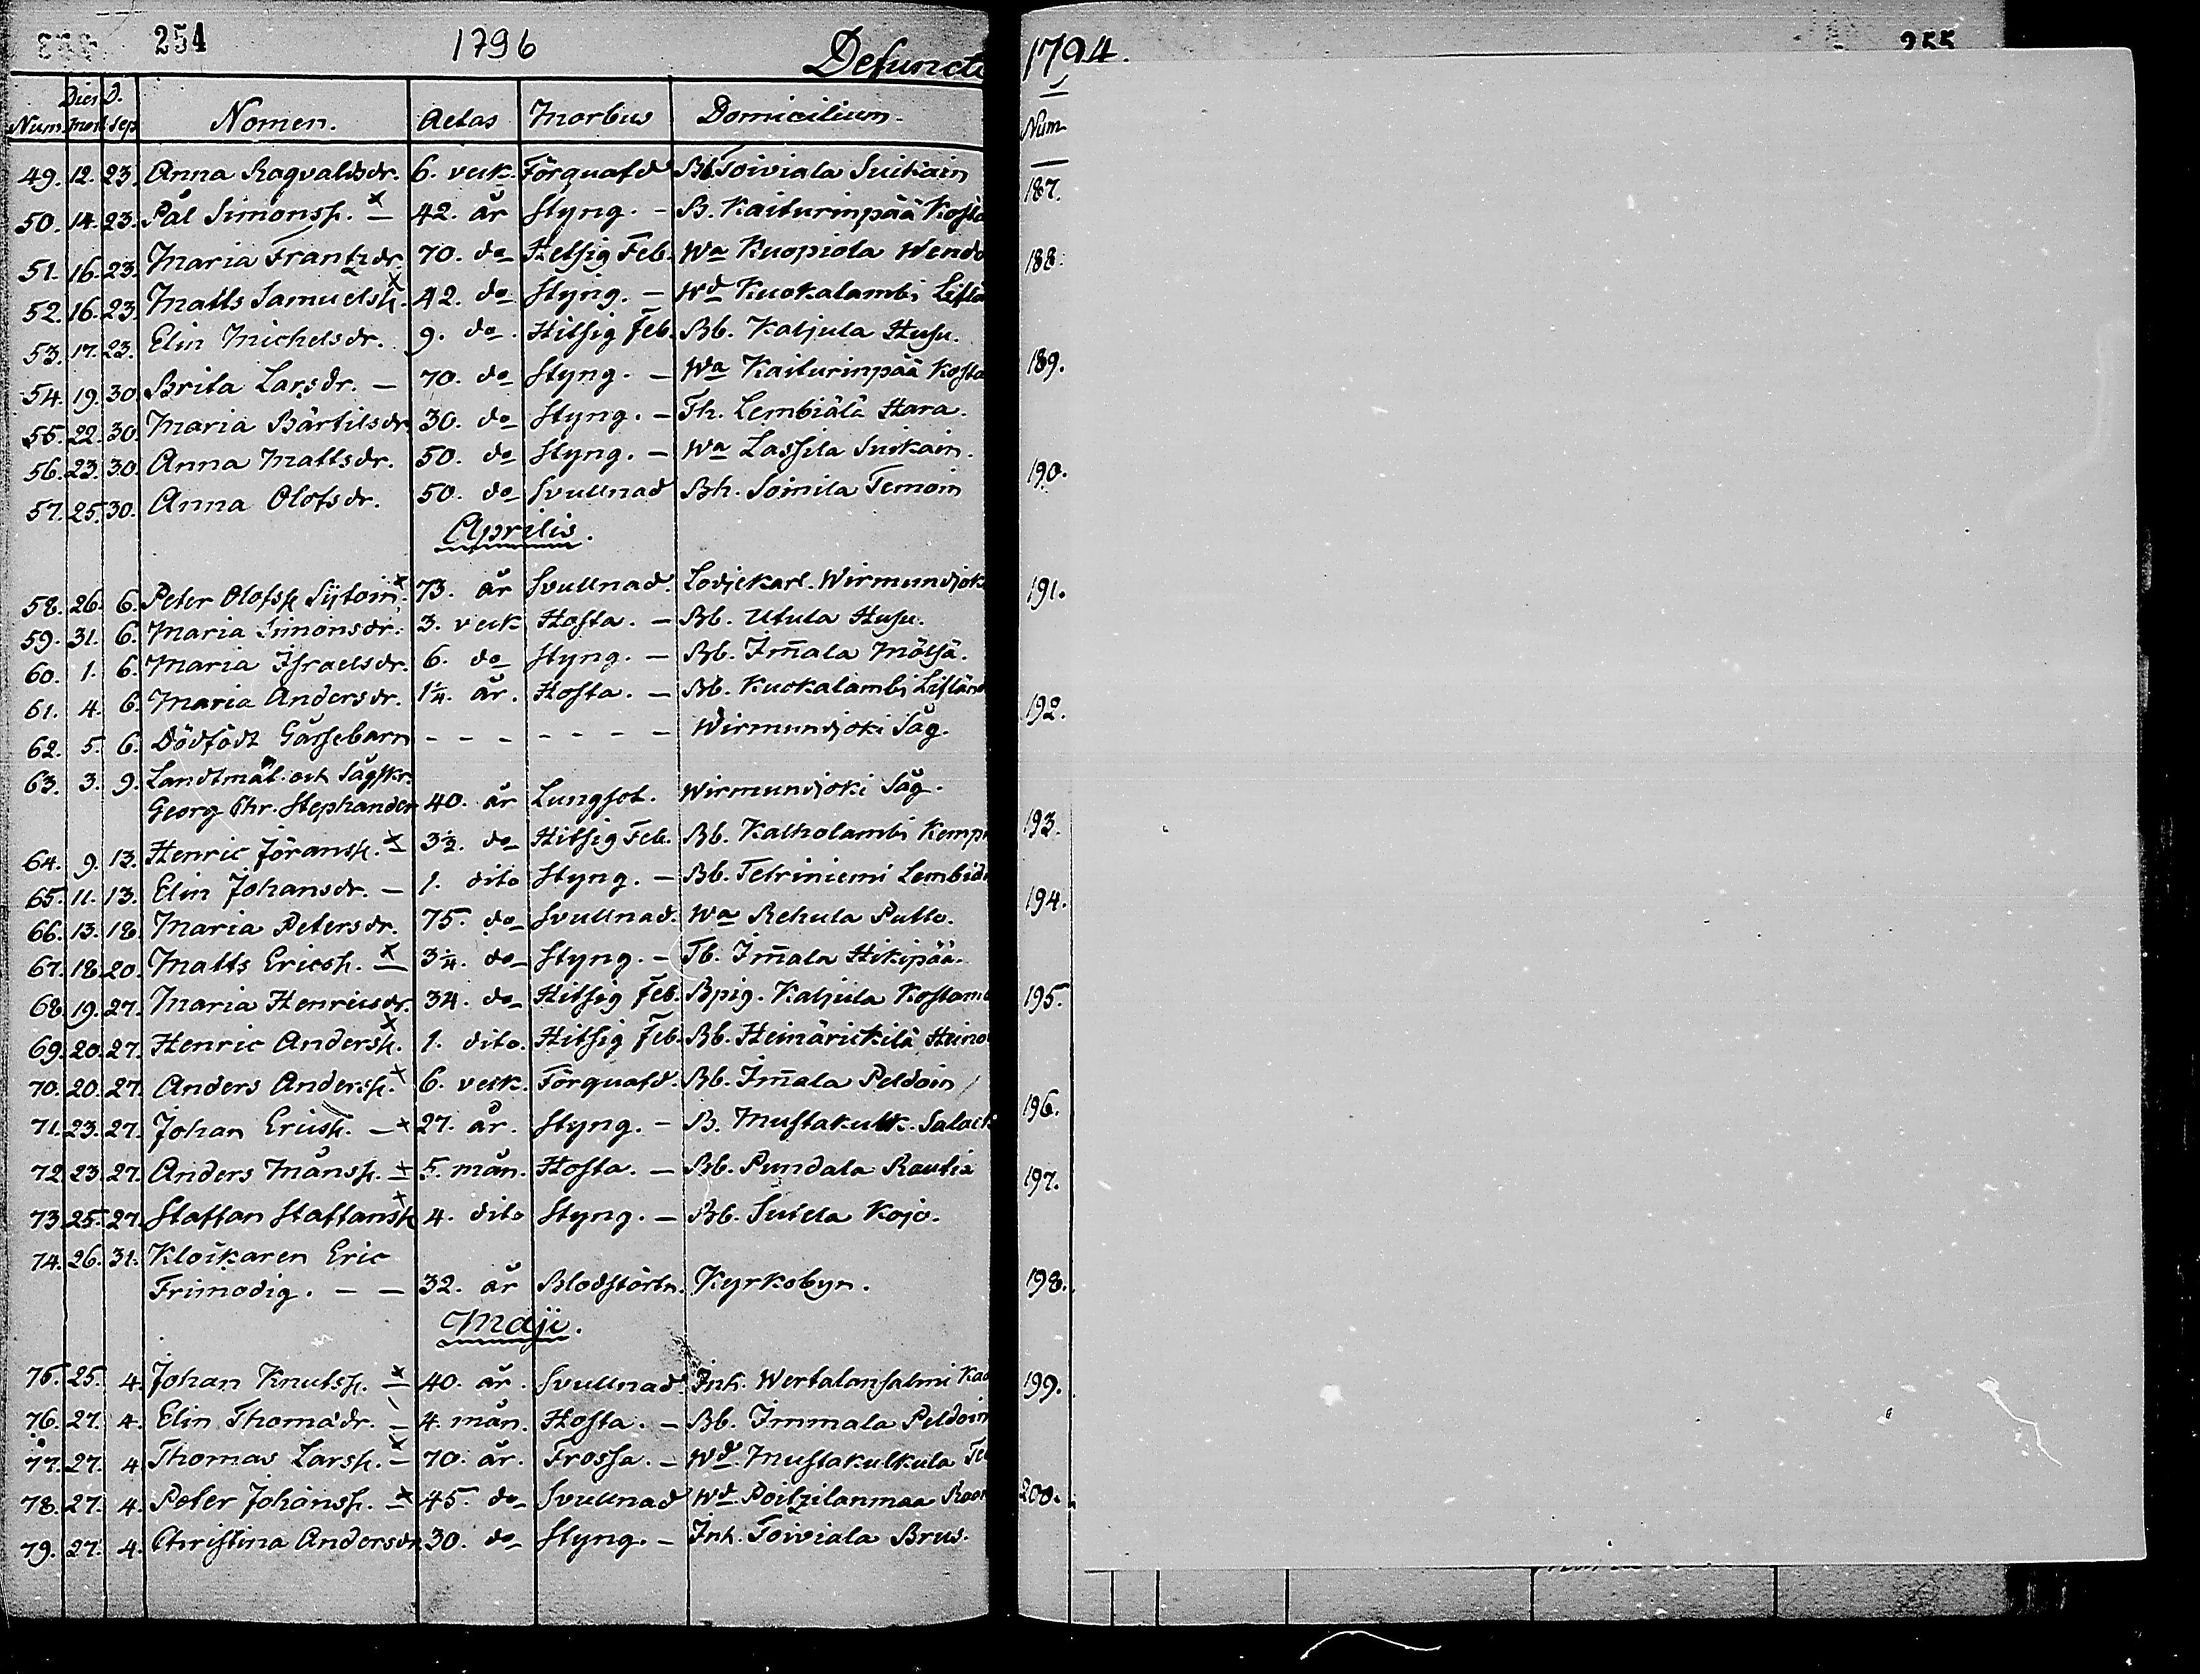 254 1796 Defuncti
Num. Dies mort. D. sep. Nomen. Aetas Morbus Domicilium.
49. 12. 23. Anna Ragvaldsdr. 6. veck. Förquafd Bb Toiviala Suikain
50. 14. 23. Pål Simonss. x — 42. år Styng. — B. Kaiturinpää Kosta
51. 16. 23. Maria Frantzdr. 70. do Hetsig Feb. Wa Kuopiola Wend
52. 16. 23. Matts Samuelss. x 42. do Styng. — Wd Kuokalambi Liflä
53. 17. 23. Elin Michelsdr. 9. do. Hitsig Feb. Bb. Kaljula Husu.
54. 19. 30. Brita Larsdr. — 70. do Styng. — Wa Kaiturinpää Kosta
55. 22. 30. Maria Bärtilsdr. 30. do Styng. — Th. Lembiälä Hara.
56. 23. 30. Anna Mattsdr. 50. do Styng. — Wa Lassila Suikain.
57. 25. 30. Anna Olofsdr. 50. do Svullnad Bh. Soinila Temoin
Aprilis.
58. 26. 6. Peter Olofss Sijtoin. x 73. år Svullnad. Lodjekarl. Wirmundjok
59. 31. 6. Maria Simonsdr. 3. veck Hosta. — Bb. Utula Husu.
60. 1. 6. Maria Israelsdr. 6. do Styng. — Bb. Im̄ala Mölsä.
61. 4. 6. Maria Andersdr. 1¼. år. Hosta. — Bb. Kuokalambi Liflän
62. 5. 6. Dödfödt Gåssebarn - - - - - - — Wirmundjoki Såg.
63. 3. 9. Landtmät. och Sågskr.
Georg Chr. Stephander 40. år Lungsot. Wirmundjoki Såg.
64. 9. 13. Henric Jöranss. x 3½. do Hitsig Feb. Bb. Kalholambi Kemp
65. 11. 13. Elin Johansdr. — 1. dito Styng. — Bb. Tetriniemi Lembid
66. 13. 18. Maria Petersdr. 75. do Svullnad. Wa Rehula Putto.
67. 18. 20. Matts Ericss. x — 3¼. do Styng. — Tb. Im̄ala Hikipää.
68. 19. 27. Maria Henricsdr. 34. do Hitsig Feb. Bpig. Kaljula Kostam
69. 20. 27. Henric Anderss. x 1. dito. Hitsig Feb. Bb. Heinärickilä Heino
70. 20. 27. Anders Anderss. x 6. veck. Förquafd. Bb. Im̄ala Peldoin
71. 23. 27. Johan Ericss. — x 27. år. Styng. — B. Mustakulk. Salack
72. 23. 27. Anders Månss. x 5. mån. Hosta. — Bb. Pundala Rautia
73. 25. 27. Staffan Staffanss x 4. dito Styng. — Bb. Sutela Kojo.
74. 26. 31. Klockaren Eric
Frimodig. — — 32. år Blodstörtn. Kyrkobyn.
Maji.
75. 25. 4. Johan Knutss. x 40. år. Svullnad. Inh. Wertalansalmi
76. 27. 4. Elin Thomædr. — 4. mån. Hosta. — Bb. Immala Peldoin
77. 27. 4. Thomas Larss. x 70. år. Frossa. — Wd. Mustakulkula
78. 27. 4. Peter Johanss. x 45. do Svullnad Wd Poitzilanmaa
79. 27. 4. Christina Andersdr 30. do Styng. — Inh. Toiviala Brus.
1794. 255
Num
187.
188.
189.
190.
191.
192.
193.
194.
195.
196.
197.
198.
199.
200.